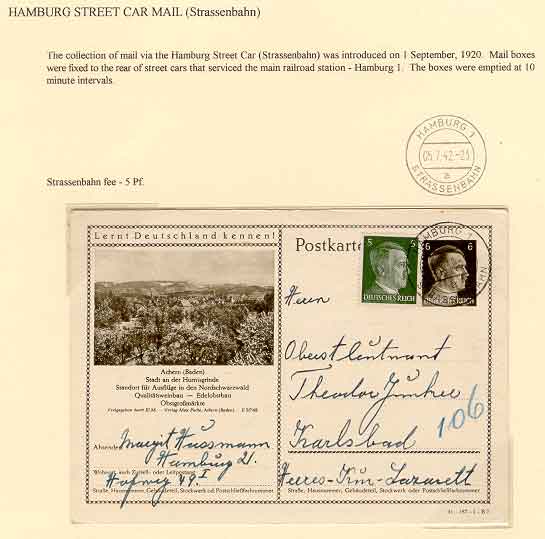 HAMBURG STREET CAR MAIL (Strassenbahn)
The collection of mail via the Hamburg Street Car (Strassenbahn) was introduced on 1 September, 1920. Mail boxes
were fixed to the rear of street cars that serviced the main railroad station - Hamburg 1. The boxes were emptied at 10
minute intervals.
HAMBURG 1
05.7.42.-23
a
STRASSENBAHN
Strassenbahn fee - 5 Pf.
Lernt Deutschland kennen!
Postkarte
5 5
DEUTSCHES REICH
6 6
HAMBURG 1
Achern (Baden)
Stadt an der Hornisgrinde
Standort für Ausflüge in den Nordschwarzwald
Qualitätsweinbau — Edelobstbau
Obstgroßmärkte
Herrn
Oberstleutnant
Theodor Junker
Karlsbad
106
Heeres-Kur-Lazarett
Absender: Margit Hussmann
Hamburg 21.
Wohnort, auch Zustell- oder Leitpostamt
49 I
Straße, Hausnummer, Gebäudeteil, Stockwerk od. Postschließfachnummer
Straße, Hausnummer, Gebäudeteil, Stockwerk oder Postschließfachnummer